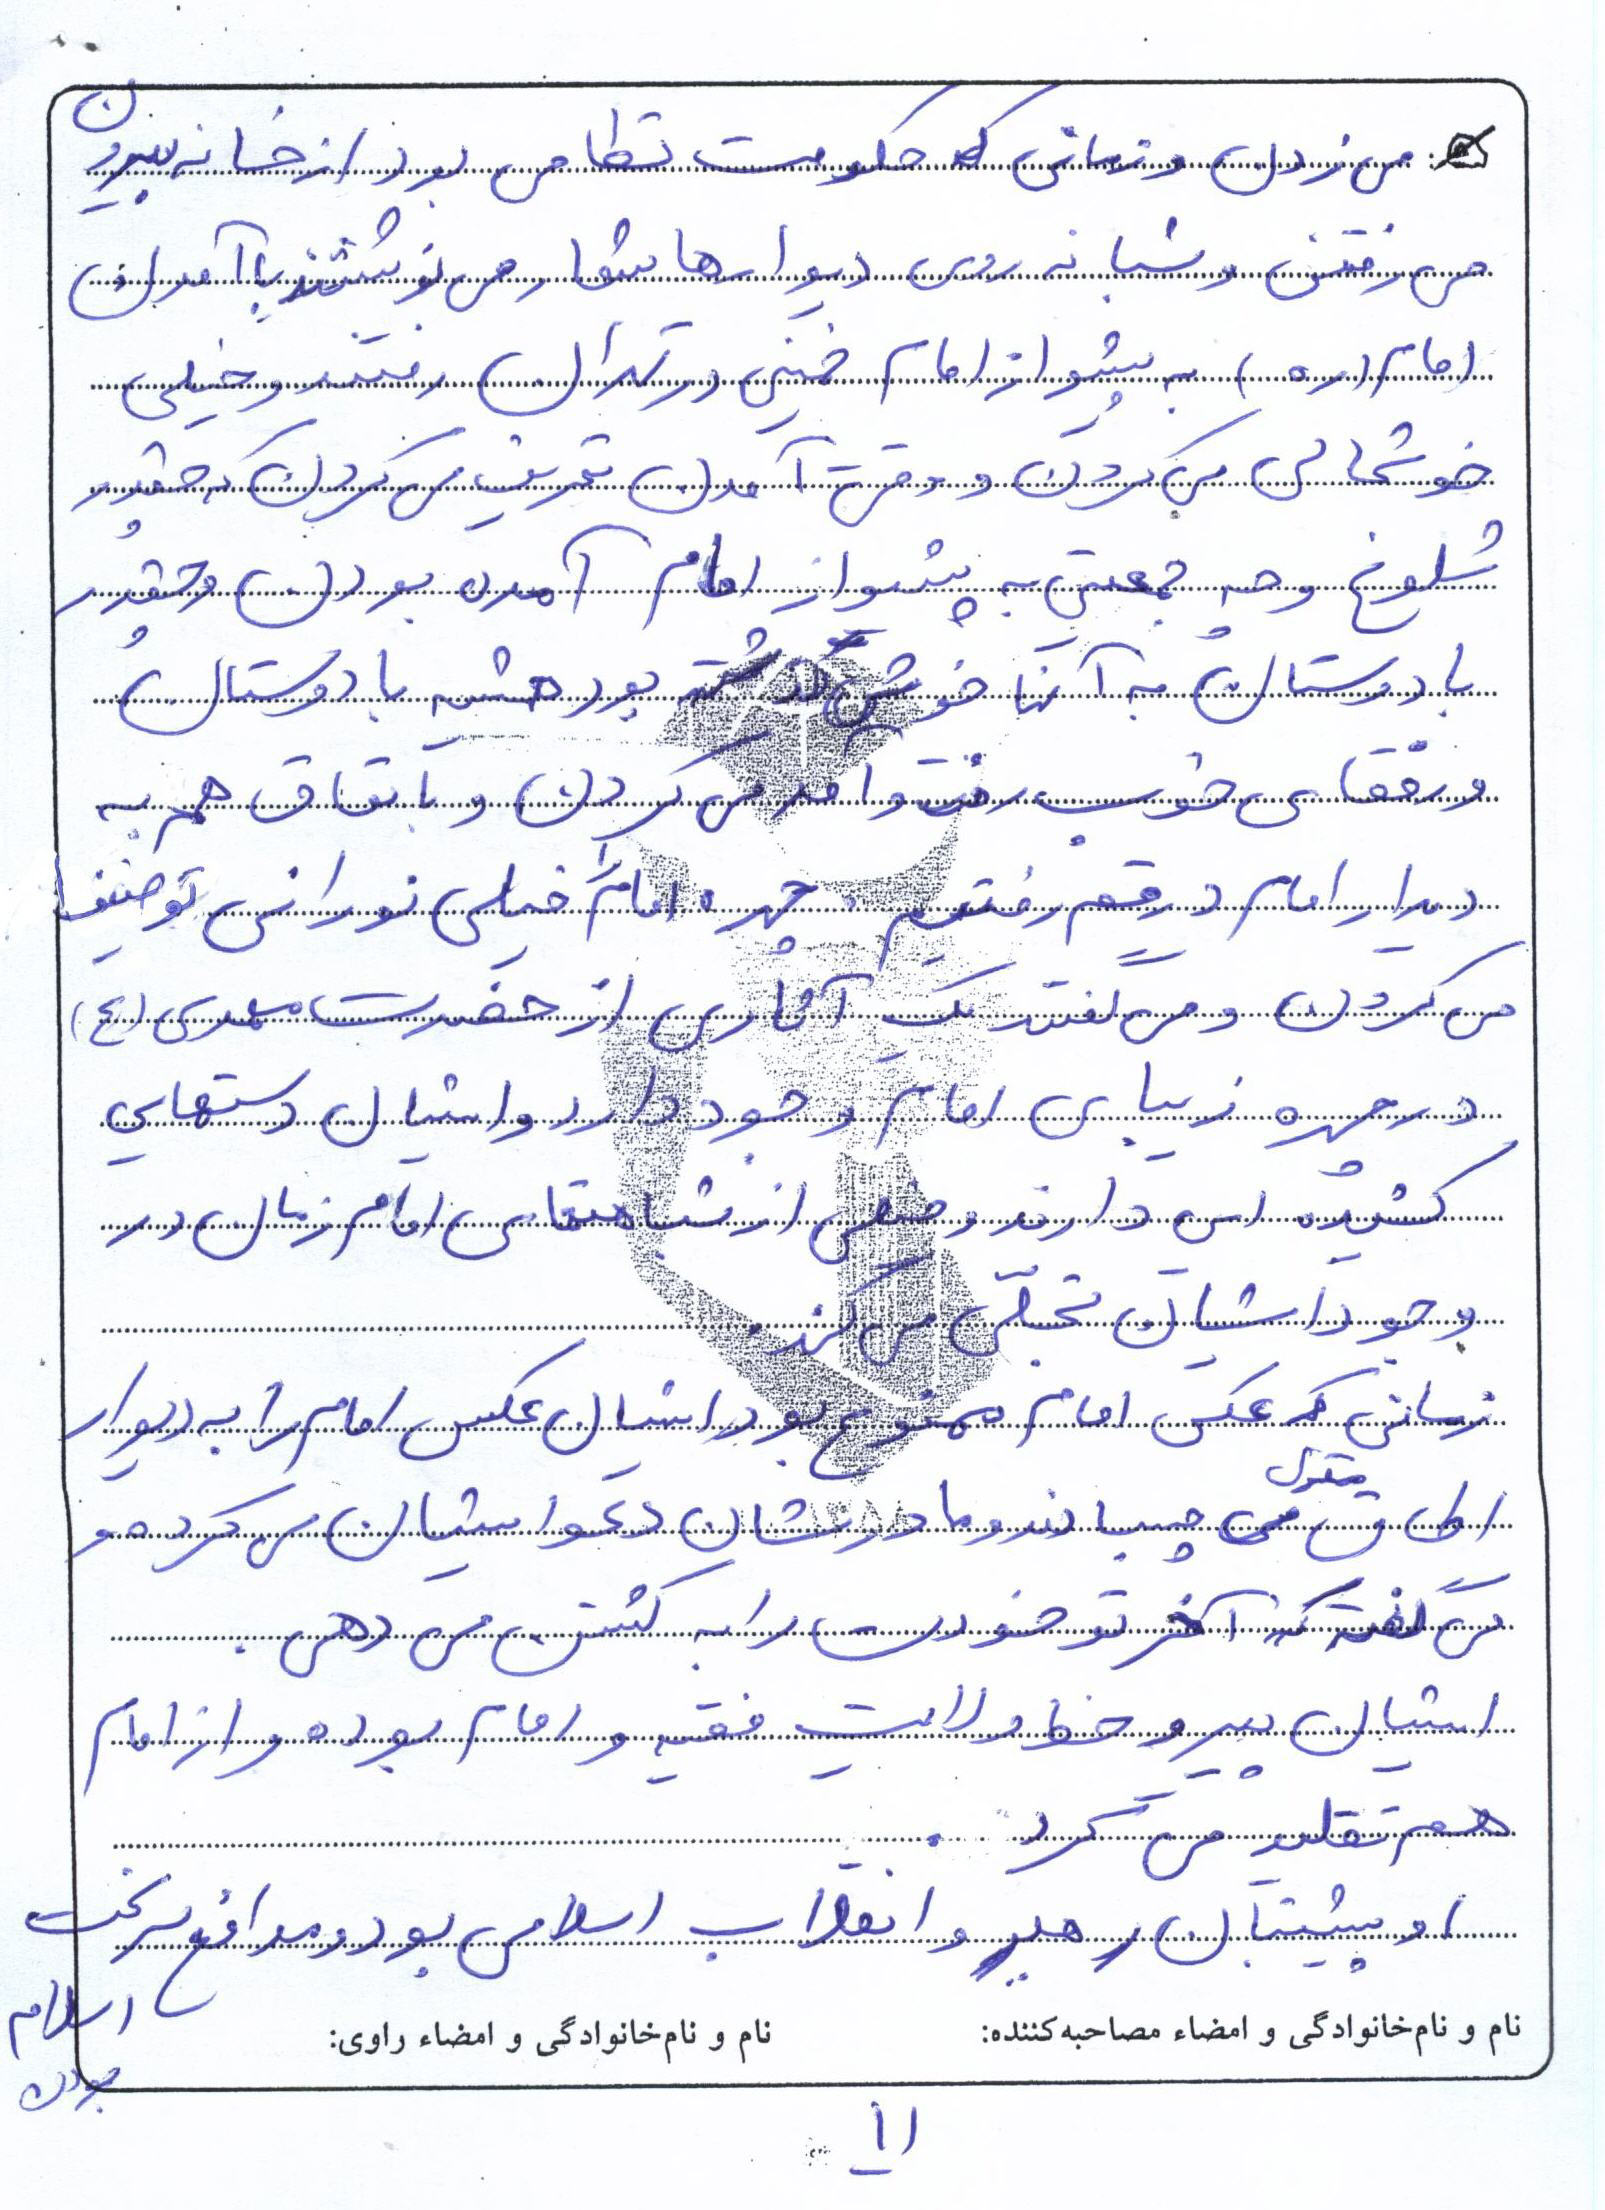 می زدن و زمانی که حکومت نظامی بود از خانه بیرون
می رفتن و شبانه روی دیوارها شعار می نوشتند با آمدن
امام (ره) به پیشواز امام خمینی در تهران رفتند و خیلی
خوشحالی می کردن و وقتی آمدن تعریف می کردن که چقدر
شلوغ و چه جمعیتی به پیشواز امام آمده بودن و چقدر
با دوستان به آنها خوش گذشته بود همیشه با دوستان
و رفقای خوب رفت و آمد می کردن و با تفاق هم به
دیدار امام در قم رفتیم. چهره امام را خیلی نورانی توصیف
می کردن و می گفتند یک آثاری از حضرت مهدی (ع)
در چهره زیبای امام وجود دارد و ایشان دستهایی
کشیده ای دارند و خیلی از شباهتهای امام زمان در
وجود ایشان تجلّی می کند.
زمانی که عکس امام ممنوع بود ایشان عکس امام را به دیوار
اطاق منزل می چسباند و مادرشان دعوا ایشان می کرده و
می گفته که آخر تو خودت را به کشتن می دهی.
ایشان پیرو خط ولایت فقیه و امام بوده و از امام
هم تقلید می کرد.
او پشتیبان رهبر و انقلاب اسلامی بود و مدافع سرسخت
اسلام
بودن
نام و نام‌خانوادگی و امضاء مصاحبه‌کننده:
نام و نام‌خانوادگی و امضاء راوی:
۱۱